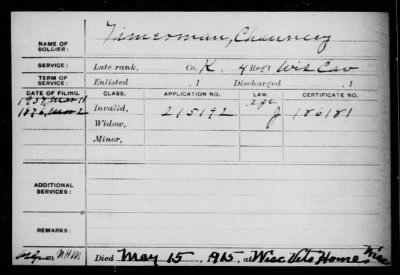 NAME OF SOLDIER: Timerman, Chauncey
SERVICE: Late rank, Co. K, 4 Reg't Wis Cav
TERM OF SERVICE: Enlisted , 1 Discharged , 1
DATE OF FILING. CLASS. APPLICATION NO. LAW. CERTIFICATE NO.
age
1876, Mar 2 Invalid, 215192 J 186181
Widow,
Minor,
ADDITIONAL SERVICES:
REMARKS:
NHM Died May 15, 1915, at Wisc Vets Home, Wisc